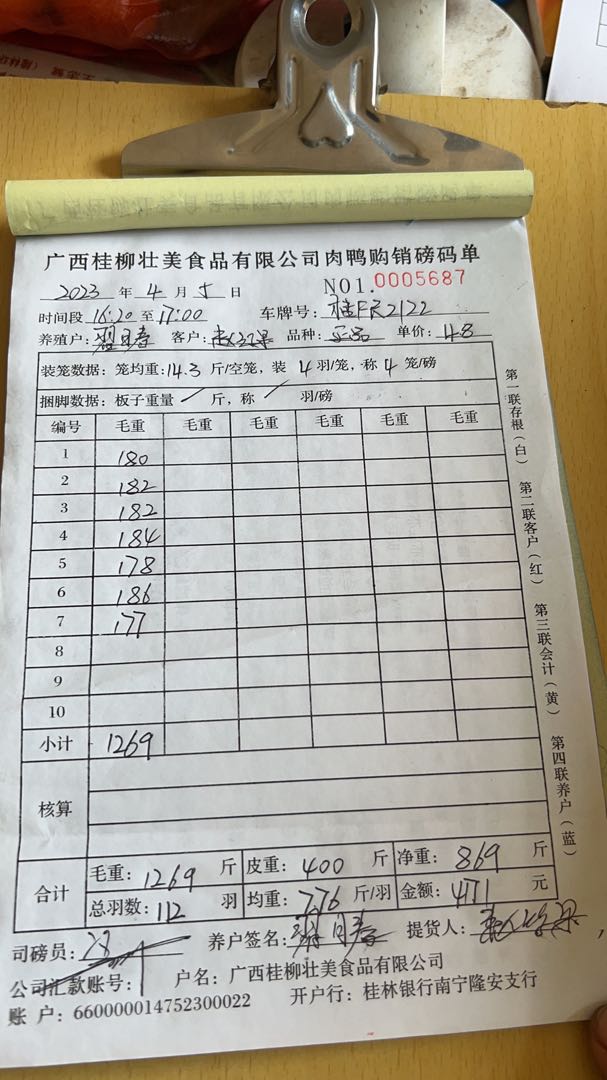 广西桂柳壮美食品有限公司肉鸭购销磅码单
2023 年 4 月 5 日 NO1. 0005687
时间段 16:20 至 17:00 车牌号: 2122
养殖户: 客户: 品种: 正品 单价: 4.8
装笼数据: 笼均重: 14.3 斤/空笼, 装 4 羽/笼, 称 4 笼/磅
捆脚数据: 板子重量 / 斤, 称 / 羽/磅
编号 毛重 毛重 毛重 毛重 毛重
1 180
2 182
3 182
4 184
5 178
6 186
7 177
8
9
10
小计 1269
核算
合计 毛重: 1269 斤 皮重: 400 斤 净重: 869 斤
总羽数: 112 羽 均重: 7.76 斤/羽 金额: 4171 元
司磅员: 养户签名: 提货人:
公司汇款账号: 户名: 广西桂柳壮美食品有限公司
账 户: 660000014752300022 开户行: 桂林银行南宁隆安支行
第一联存根(白) 第二联客户(红) 第三联会计(黄) 第四联养户(蓝)